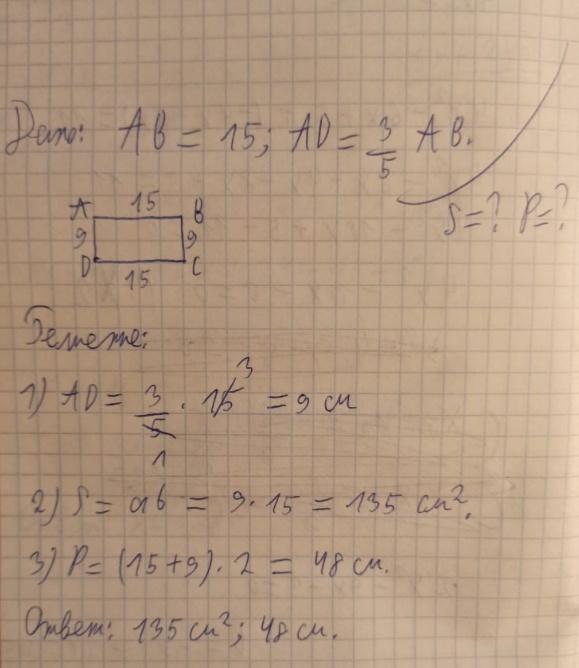 Дано: AB = 15; AD = 3/5 AB.
S = ? P = ?
A 15 B
9 9
D 15 C
Решение:
1) AD = 3/5 · 15 = 9 см
3
1
2) S = ab = 9 · 15 = 135 см².
3) P = (15+9) · 2 = 48 см.
Ответ: 135 см²; 48 см.